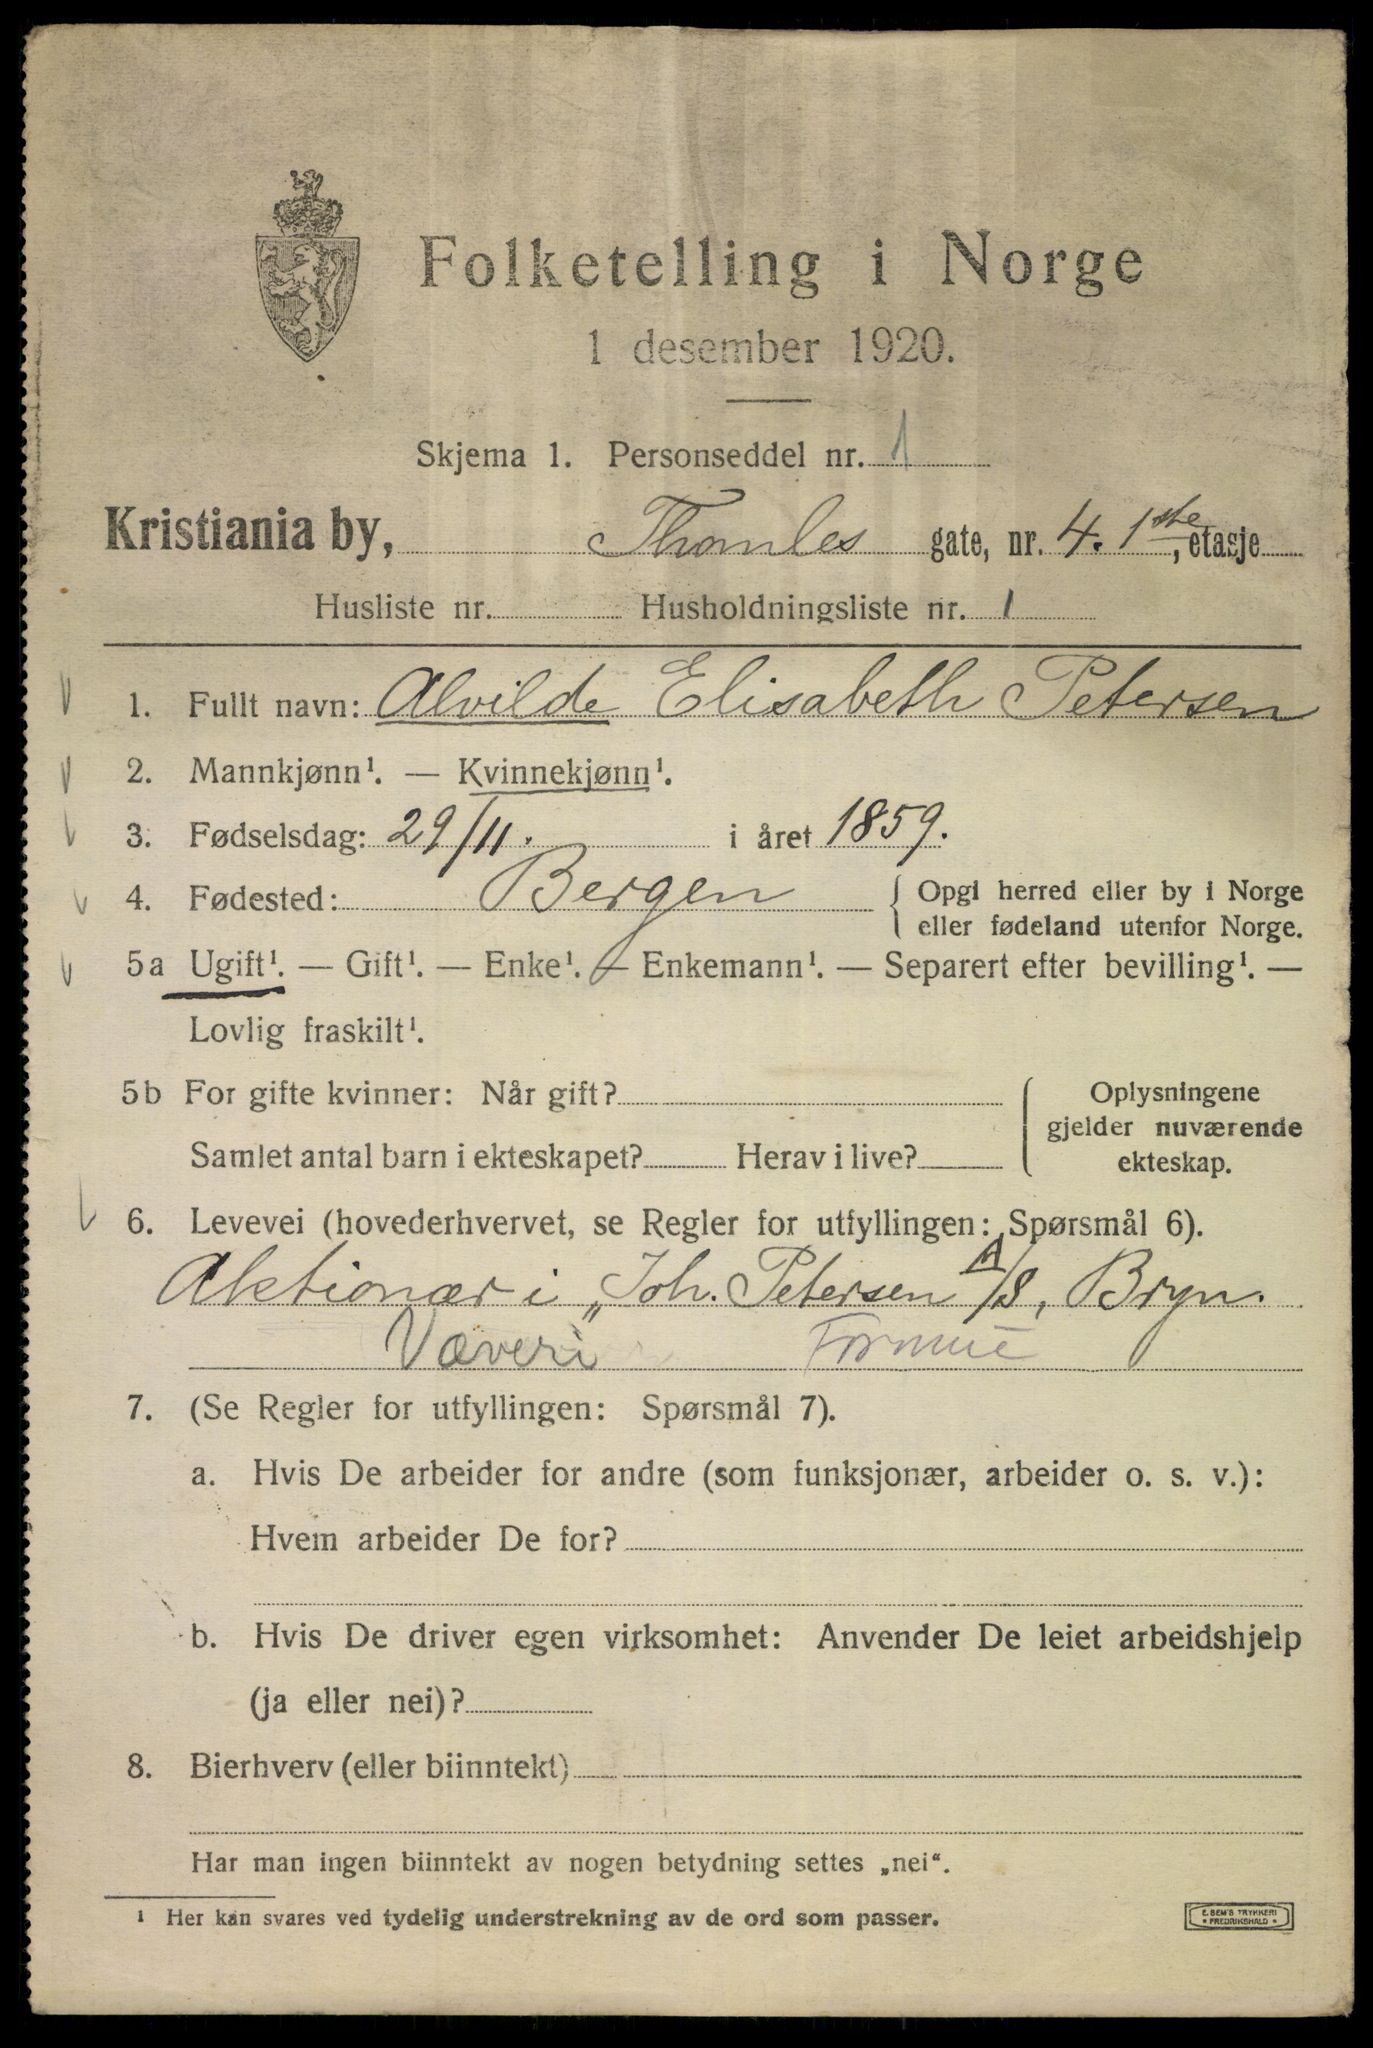 Folketelling i Norge
1 desember 1920.
Skjema 1. Personseddel nr. 1
Kristiania by, Thomles gate, nr. 4. 1ste, etasje
Husliste nr. Husholdningsliste nr. 1
1. Fullt navn: Alvilde Elisabeth Petersen
2. Mannkjønn¹. — Kvinnekjønn¹.
3. Fødselsdag: 29/11. i året 1859.
4. Fødested: Bergen { Opgi herred eller by i Norge
eller fødeland utenfor Norge.
5a Ugift¹. — Gift¹. — Enke¹. — Enkemann¹. — Separert efter bevilling¹. —
Lovlig fraskilt¹.
5b For gifte kvinner: Når gift? { Oplysningene
gjelder nuværende
Samlet antal barn i ekteskapet? Herav i live? ekteskap.
6. Levevei (hovederhvervet, se Regler for utfyllingen: Spørsmål 6).
Aktionær i „Joh. Petersen A/S, Bryn.
Væveri Formue
7. (Se Regler for utfyllingen: Spørsmål 7).
a. Hvis De arbeider for andre (som funksjonær, arbeider o. s. v.):
Hvem arbeider De for?
b. Hvis De driver egen virksomhet: Anvender De leiet arbeidshjelp
(ja eller nei)?
8. Bierhverv (eller biinntekt)
Har man ingen biinntekt av nogen betydning settes „nei“.
¹ Her kan svares ved tydelig understrekning av de ord som passer.
E. SEM'S TRYKKERI
• FREDRIKSHALD •